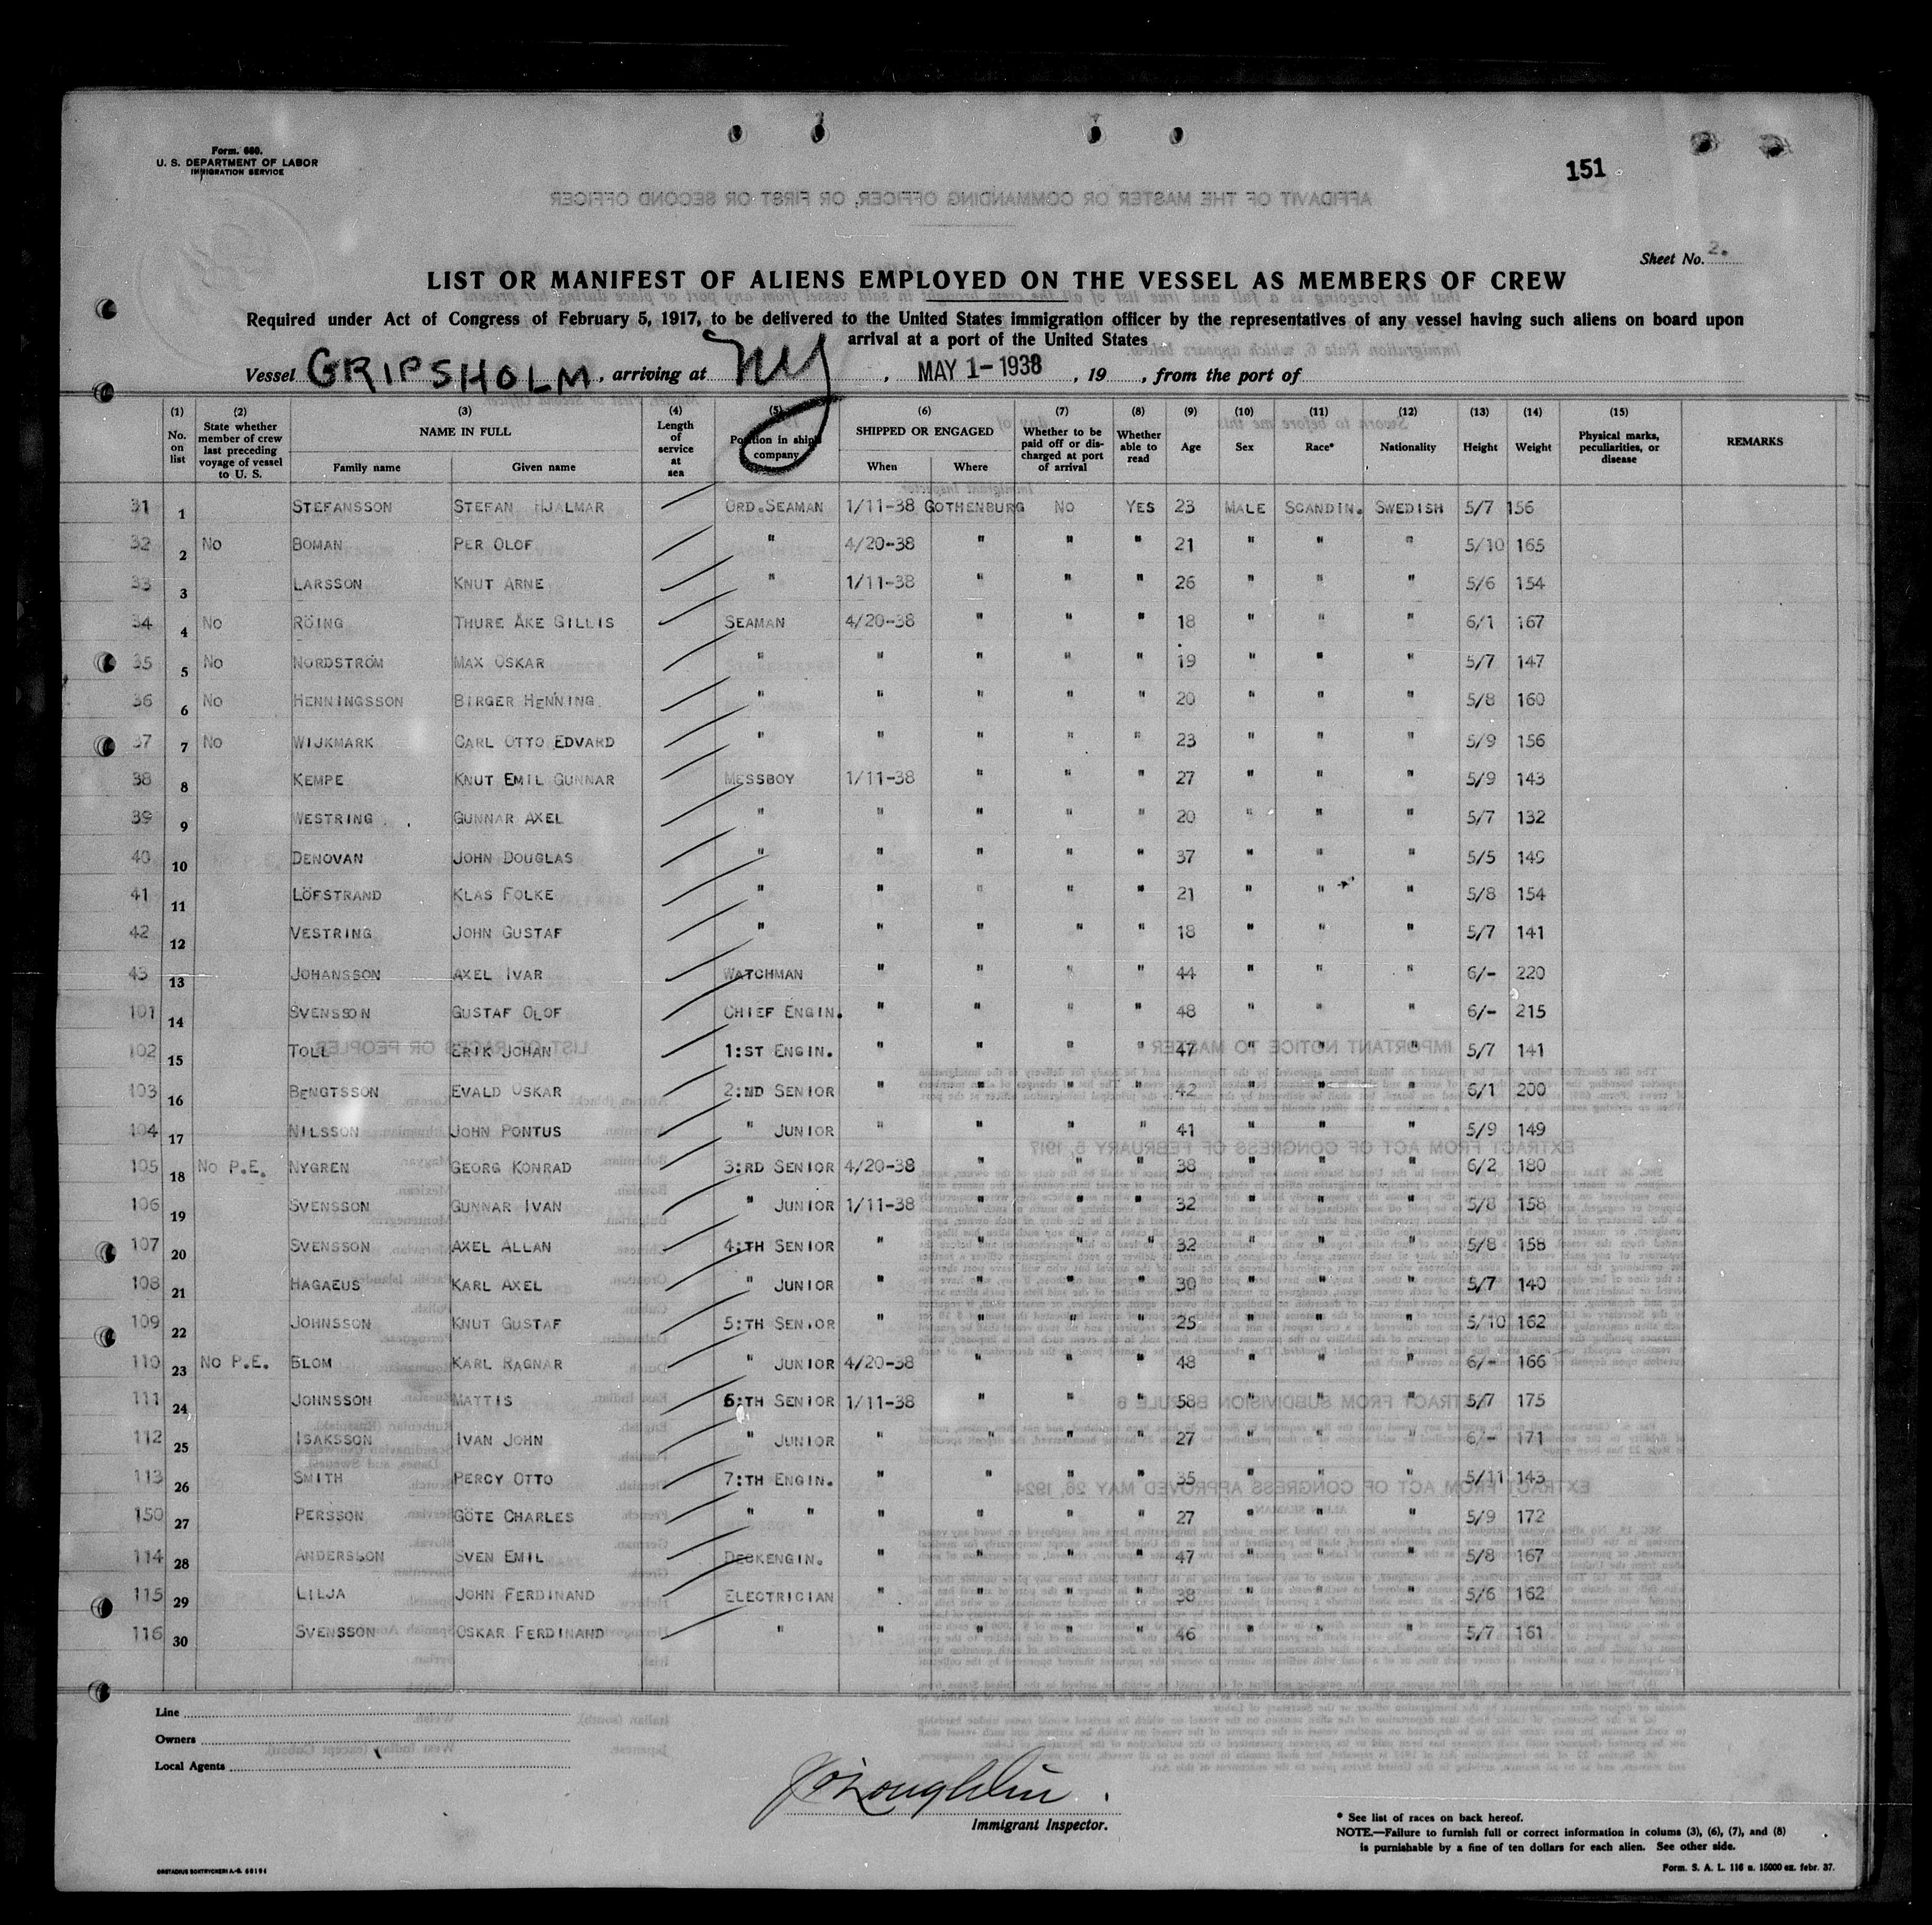 Form. 680.
U. S. DEPARTMENT OF LABOR
IMMIGRATION SERVICE
151
Sheet No. 2.
LIST OR MANIFEST OF ALIENS EMPLOYED ON THE VESSEL AS MEMBERS OF CREW
Required under Act of Congress of February 5, 1917, to be delivered to the United States immigration officer by the representatives of any vessel having such aliens on board upon
arrival at a port of the United States
Vessel GRIPSHOLM, arriving at NY, MAY 1-1938, 19 , from the port of
(1) No. on list (2) State whether member of crew last preceding voyage of vessel to U. S. (3) NAME IN FULL Family name Given name (4) Length of service at sea (5) Position in ship's company (6) SHIPPED OR ENGAGED When Where (7) Whether to be paid off or discharged at port of arrival (8) Whether able to read (9) Age (10) Sex (11) Race* (12) Nationality (13) Height (14) Weight (15) Physical marks, peculiarities, or disease REMARKS
31 1 STEFANSSON STEFAN HJALMAR ORD.SEAMAN 1/11-38 GOTHENBURG NO YES 23 MALE SCANDIN. SWEDISH 5/7 156
32 2 NO BOMAN PER OLOF " 4/20-38 " " " 21 " " " 5/10 165
33 3 LARSSON KNUT ARNE " 1/11-38 " " " 26 " " " 5/6 154
34 4 NO RÖING THURE ÅKE GILLIS SEAMAN 4/20-38 " " " 18 " " " 6/1 167
35 5 NO NORDSTRÖM MAX OSKAR " " " " " 19 " " " 5/7 147
36 6 NO HENNINGSSON BIRGER HENNING " " " " " 20 " " " 5/8 160
37 7 NO WIJKMARK CARL OTTO EDVARD " " " " " 23 " " " 5/9 156
38 8 KEMPE KNUT EMIL GUNNAR MESSBOY 1/11-38 " " " 27 " " " 5/9 143
39 9 WESTRING GUNNAR AXEL " " " " " 20 " " " 5/7 132
40 10 DENOVAN JOHN DOUGLAS " " " " " 37 " " " 5/5 149
41 11 LÖFSTRAND KLAS FOLKE " " " " " 21 " " " 5/8 154
42 12 VESTRING JOHN GUSTAF " " " " " 18 " " " 5/7 141
43 13 JOHANSSON AXEL IVAR WATCHMAN " " " " 44 " " " 6/- 220
101 14 SVENSSON GUSTAF OLOF CHIEF ENGIN. " " " " 48 " " " 6/- 215
102 15 TOLL ERIK JOHAN 1:ST ENGIN. " " " " 47 " " " 5/7 141
103 16 BENGTSSON EVALD OSKAR 2:ND SENIOR " " " " 42 " " " 6/1 200
104 17 NILSSON JOHN PONTUS " JUNIOR " " " " 41 " " " 5/9 149
105 18 NO P.E. NYGREN GEORG KONRAD 3:RD SENIOR 4/20-38 " " " 38 " " " 6/2 180
106 19 SVENSSON GUNNAR IVAN " JUNIOR 1/11-38 " " " 32 " " " 5/8 158
107 20 SVENSSON AXEL ALLAN 4:TH SENIOR " " " " 32 " " " 5/8 158
108 21 HAGAEUS KARL AXEL " JUNIOR " " " " 30 " " " 5/7 140
109 22 JOHNSSON KNUT GUSTAF 5:TH SENIOR " " " " 25 " " " 5/10 162
110 23 NO P.E. BLOM KARL RAGNAR " JUNIOR 4/20-38 " " " 48 " " " 6/- 166
111 24 JOHNSSON MATTIS 6:TH SENIOR 1/11-38 " " " 58 " " " 5/7 175
112 25 ISAKSSON IVAN JOHN " JUNIOR " " " " 27 " " " 6/- 171
113 26 SMITH PERCY OTTO 7:TH ENGIN. " " " " 35 " " " 5/11 143
150 27 PERSSON GÖTE CHARLES " " " " " " 27 " " " 5/9 172
114 28 ANDERSSON SVEN EMIL DECKENGIN. " " " " 47 " " " 5/8 167
115 29 LILJA JOHN FERDINAND ELECTRICIAN " " " " 38 " " " 5/6 162
116 30 SVENSSON OSKAR FERDINAND " " " " " 46 " " " 5/7 161
Line
Owners
Local Agents
J O'Loughlin
Immigrant Inspector.
* See list of races on back hereof.
NOTE.—Failure to furnish full or correct information in colums (3), (6), (7), and (8)
is punishable by a fine of ten dollars for each alien. See other side.
Form. S. A. L. 116 n. 15000 ex. febr. 37.